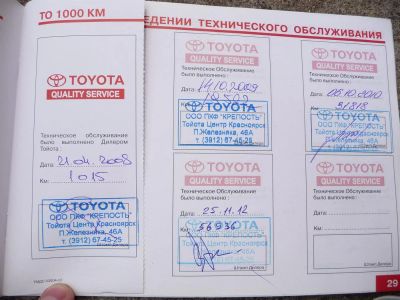 ТО 1000 КМ
ВЕДЕНИИ ТЕХНИЧЕСКОГО ОБСЛУЖИВАНИЯ
TOYOTA
QUALITY SERVICE
Техническое обслуживание
было выполнено Дилером
Тойота :
Дата:
21.04.2008
Км:
1015
TOYOTA
ООО ПКФ "КРЕПОСТЬ"
Тойота Центр Красноярск
П.Железняка, 46А
т. (3912) 67-45-25
TOYOTA
QUALITY SERVICE
Техническое Обслуживание
было выполнено :
Дата:
14.10.2009
TOYOTA
ООО ПКФ "КРЕПОСТЬ"
Тойота Центр Красноярск
П.Железняка, 46А
т. (3912) 67-45-25
TOYOTA
QUALITY SERVICE
Техническое Обслуживание
было выполнено :
Дата: 06.10.2010
Км: 51818
Штамп Дилера
TOYOTA
QUALITY SERVICE
Техническое Обслуживание
было выполнено :
Дата: 25.11.12
Км: 56936
TOYOTA
ООО ПКФ "КРЕПОСТЬ"
Тойота Центр Красноярск
П.Железняка, 46А
т. (3912) 67-45-25
Штамп Дилера
TOYOTA
QUALITY SERVICE
Техническое Обслуживание
было выполнено :
Дата:
Км:
Штамп Дилера
29